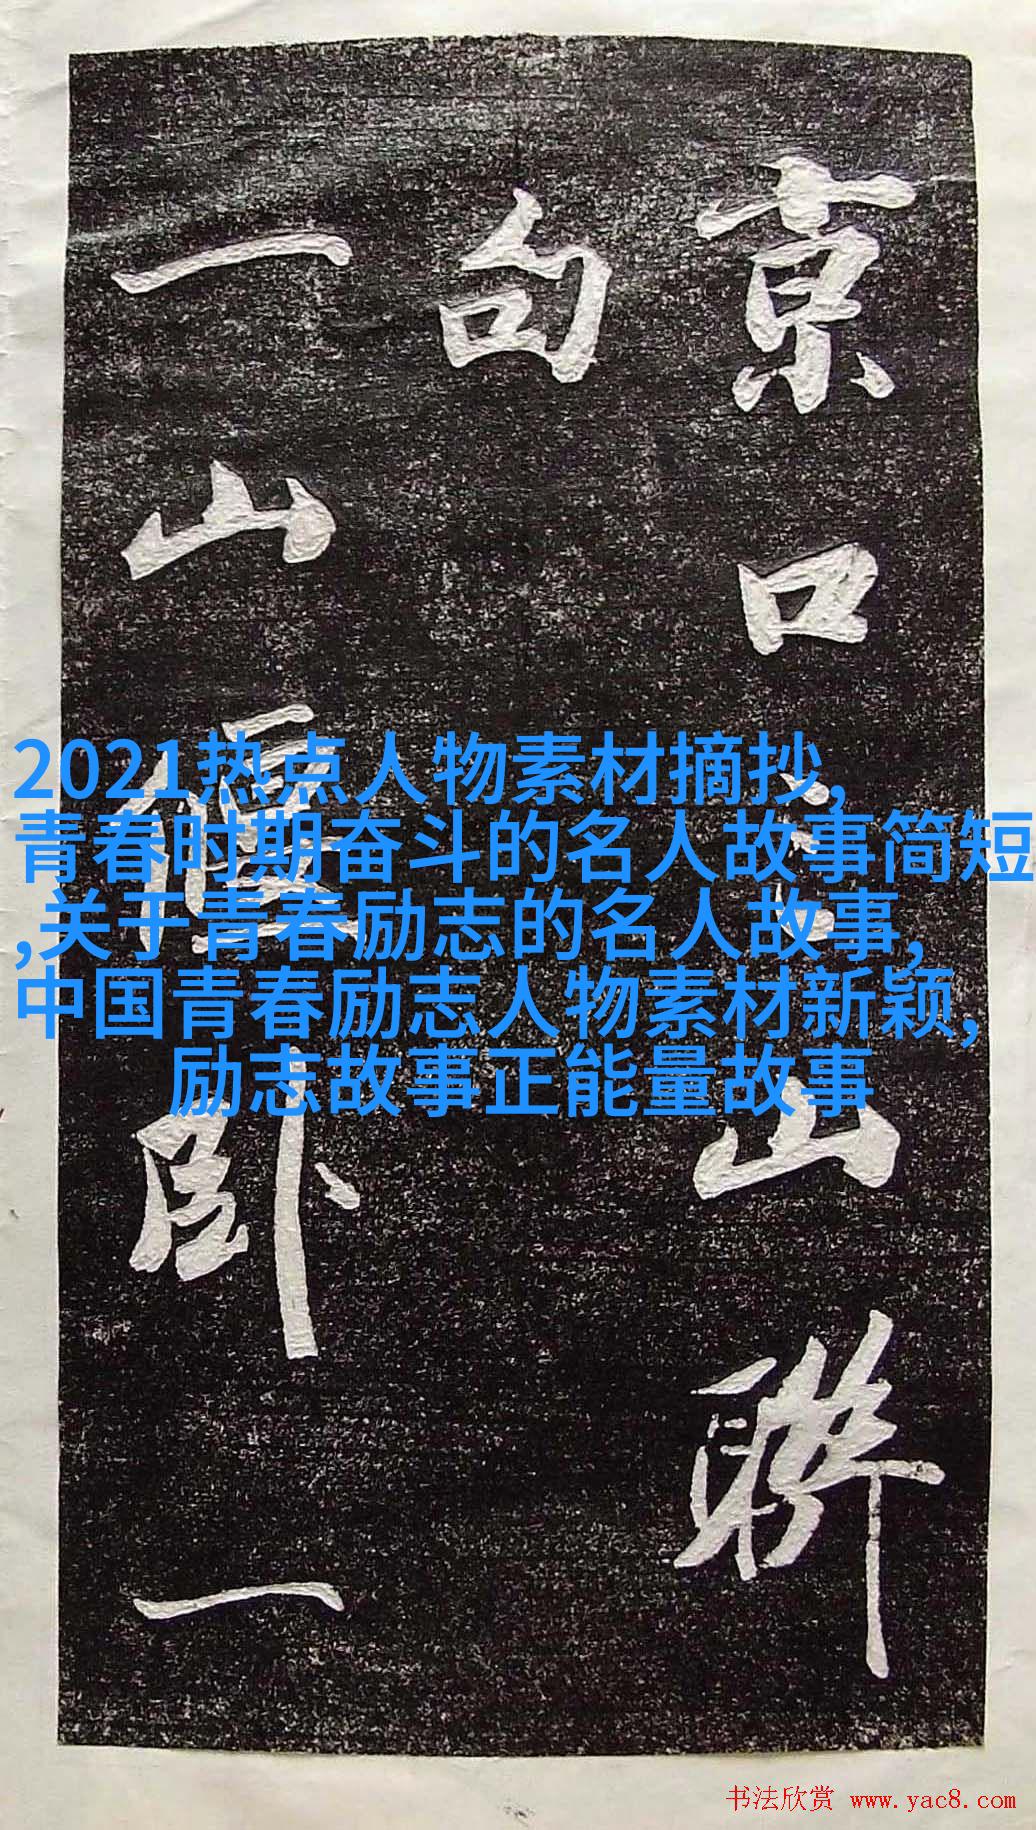 京口山聯
句
一山偃臥一
2021热点人物素材摘抄,
青春时期奋斗的名人故事简短
,关于青春励志的名人故事,
中国青春励志人物素材新颖,
励志故事正能量故事
书法欣赏 www.yac8.com